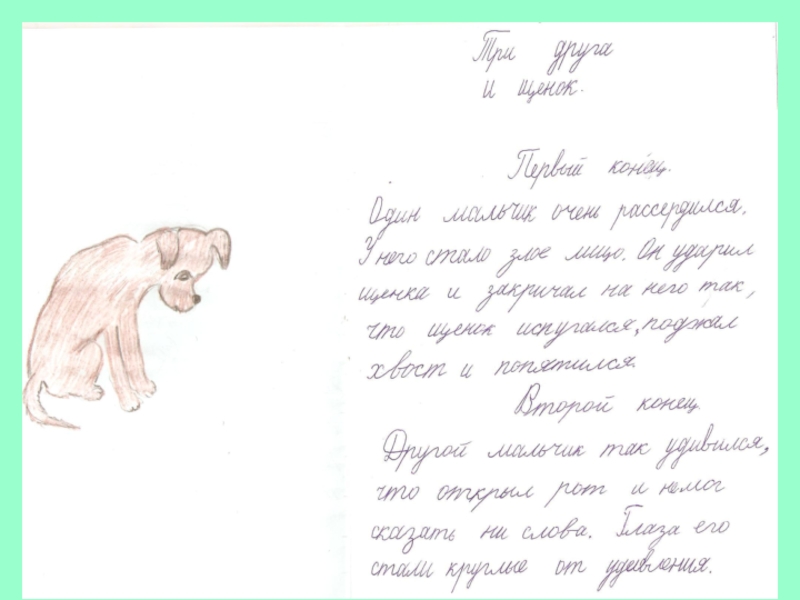 Три друга
и щенок.
Первый конец.
Один мальчик очень рассердился.
У него стало злое лицо. Он ударил
щенка и закричал на него так,
что щенок испугался, поджал
хвост и попятился.
Второй конец
Другой мальчик так удивился,
что открыл рот и немог
сказать ни слова. Глаза его
стали круглые от удивления.